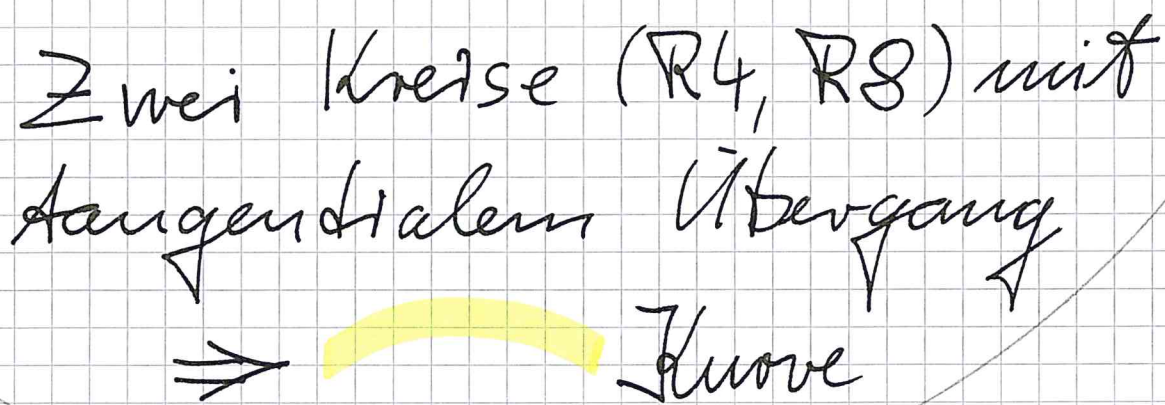 Zwei Kreise (R4, R8) mit
tangentialem Übergang
⇒ Kurve